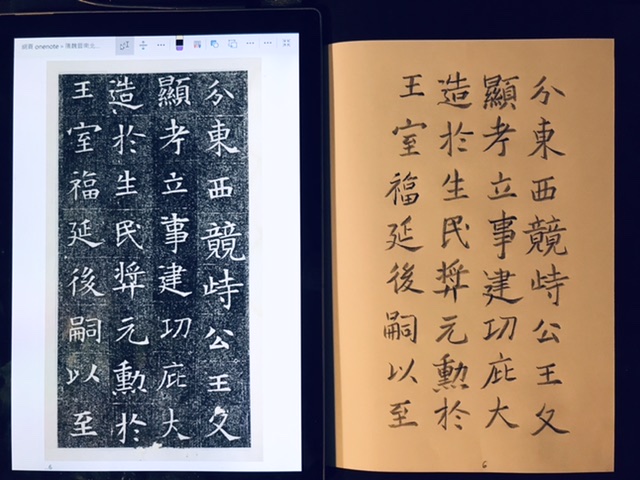 onenote
分東西競峙公王父
顯考立事建功庇大
造於生民奬元勳於
王室福延後嗣以至
分東西競峙公王父
顯考立事建功庇大
造於生民奬元勳於
王室福延後嗣以至
6